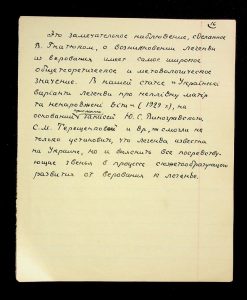 16
Это замечательное наблюдение, сделанное
В. Гнатюком, о возникновении легенды
из верования имеет самое широкое
общетеоретическое и методологическое
значение. В нашей статье "Украінські
варіанти легенди про неплідну матір
та ненароджені діти" (1929 г.), на
основании записей Ю. С. Виноградского,
С. М. Терещенковой и др., мы смогли не
только установить, что легенда известна
на Украине, но и выяснить все посредству-
ющие звенья в процессе сюжетообразующего
развития от верования к легенде.